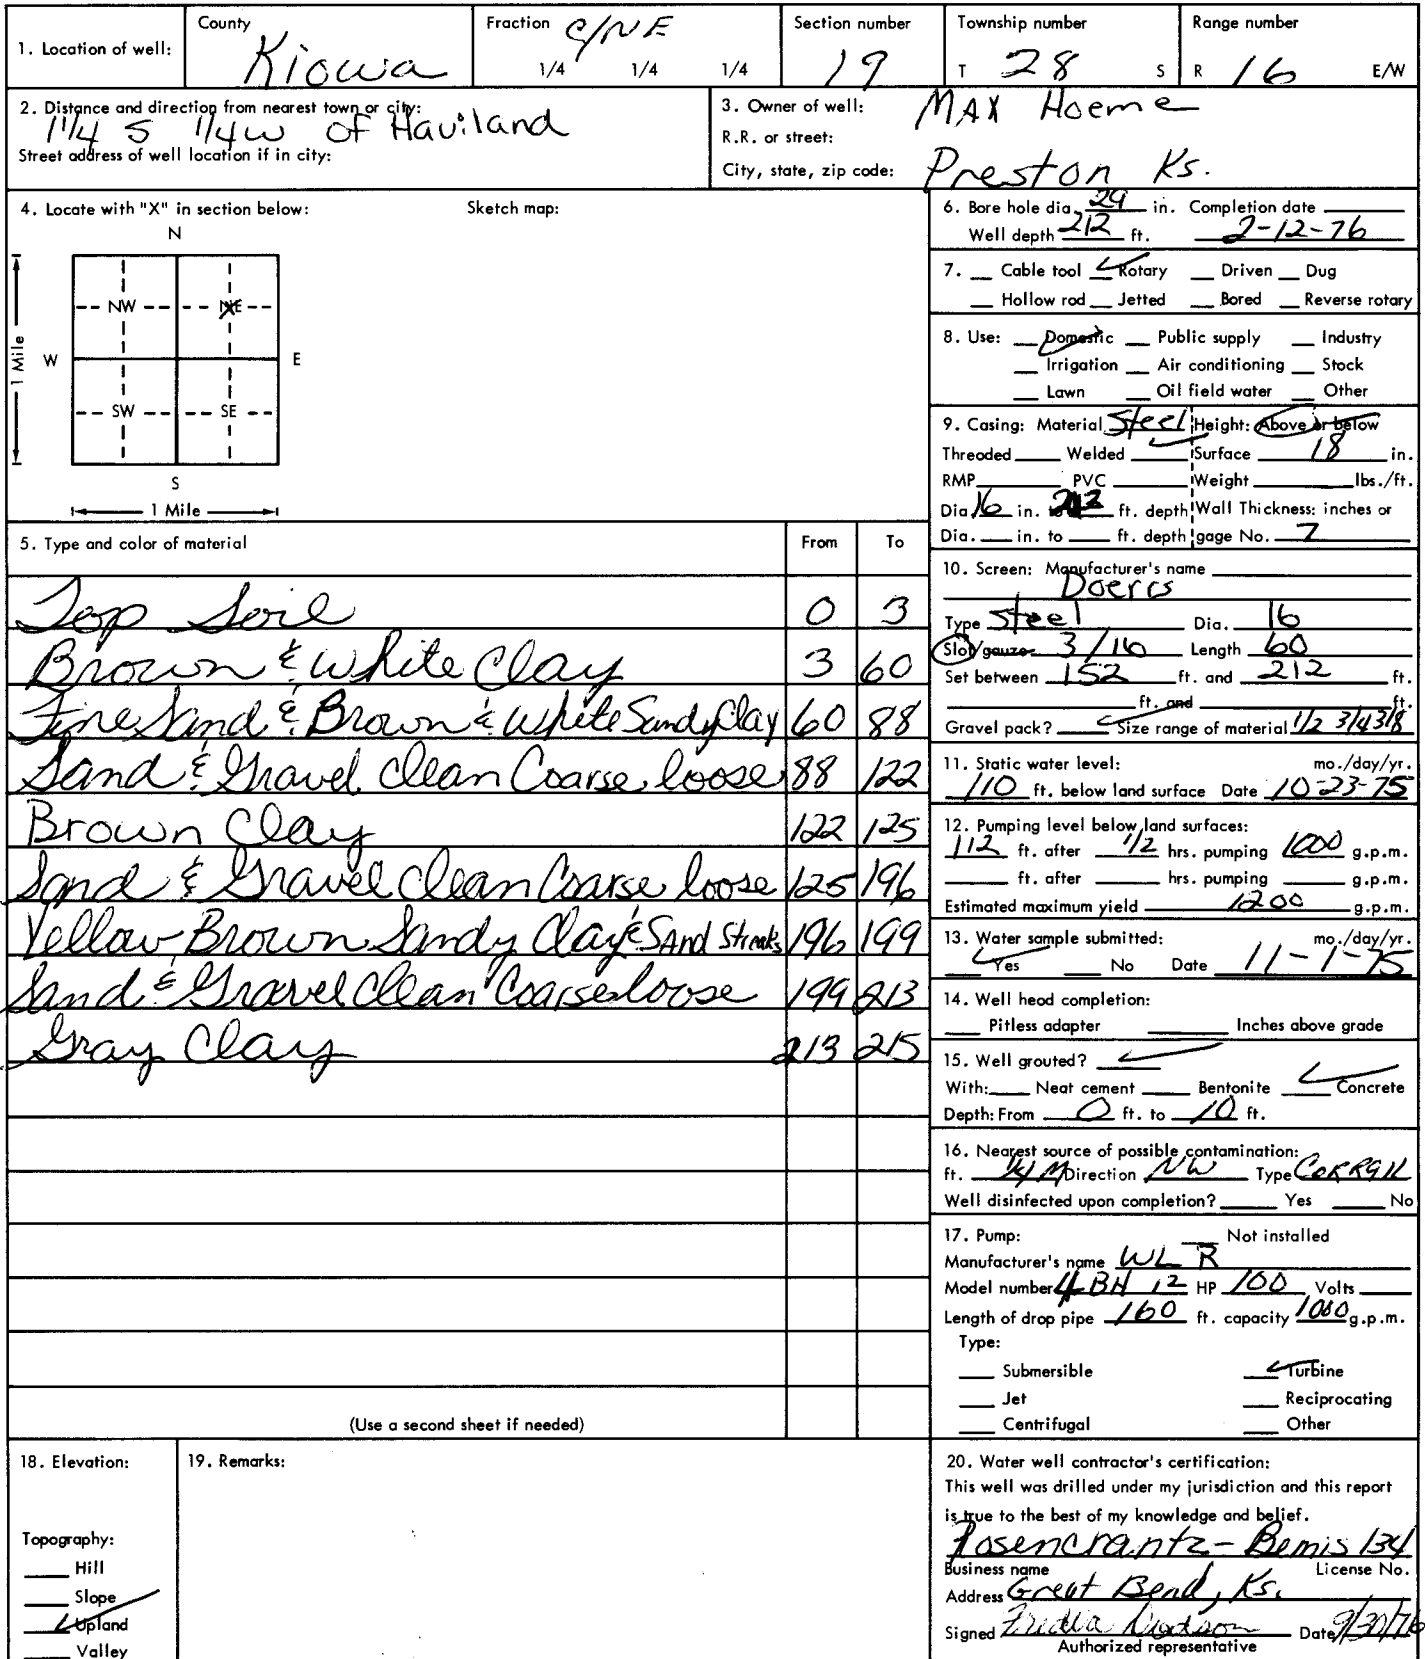 1. Location of well: County Kiowa Fraction C/NE 1/4 1/4 1/4 Section number 19 Township number T 28 S Range number R 16 E/W
2. Distance and direction from nearest town or city: 1 1/4 S 1/4 W of Haviland
Street address of well location if in city:
3. Owner of well: MAX Hoeme
R.R. or street:
City, state, zip code: Preston Ks.
4. Locate with "X" in section below: Sketch map:
N
NW NE
W E
1 Mile
SW SE
S
1 Mile
5. Type and color of material From To
Top Soil 0 3
Brown & White Clay 3 60
Fine Sand & Brown & White Sandy Clay 60 88
Sand & Gravel Clean Coarse loose 88 122
Brown Clay 122 125
Sand & Gravel Clean Coarse loose 125 196
Yellow Brown Sandy Clay & SAnd Streaks 196 199
Sand & Gravel Clean Coarse loose 199 213
Gray Clay 213 215
(Use a second sheet if needed)
6. Bore hole dia. 29 in. Completion date
Well depth 212 ft. 2-12-76
7. Cable tool ✓ Rotary Driven Dug
Hollow rod Jetted Bored Reverse rotary
8. Use: Domestic Public supply Industry
Irrigation Air conditioning Stock
Lawn Oil field water Other
9. Casing: Material Steel Height: Above or below
Threaded Welded ✓ Surface 18 in.
RMP PVC Weight lbs./ft.
Dia. 16 in. to 212 ft. depth Wall Thickness: inches or
Dia. in. to ft. depth gage No. 7
10. Screen: Manufacturer's name
Doerrs
Type Steel Dia. 16
Slot/gauze 3/16 Length 60
Set between 152 ft. and 212 ft.
ft. and ft.
Gravel pack? ✓ Size range of material 1/2 3/4 3/8
11. Static water level: mo./day/yr.
110 ft. below land surface Date 10-23-75
12. Pumping level below land surfaces:
112 ft. after 1/2 hrs. pumping 1000 g.p.m.
ft. after hrs. pumping g.p.m.
Estimated maximum yield 1200 g.p.m.
13. Water sample submitted: mo./day/yr.
✓ Yes No Date 11-1-75
14. Well head completion:
Pitless adapter Inches above grade
15. Well grouted? ✓
With: Neat cement Bentonite ✓ Concrete
Depth: From 0 ft. to 10 ft.
16. Nearest source of possible contamination:
ft. 1/4 M Direction NW Type
Well disinfected upon completion? Yes No
17. Pump: Not installed
Manufacturer's name WLR
Model number 4 BH 12 HP 100 Volts
Length of drop pipe 160 ft. capacity 1000 g.p.m.
Type:
Submersible ✓ Turbine
Jet Reciprocating
Centrifugal Other
18. Elevation:
Topography:
Hill
Slope
✓ Upland
Valley
19. Remarks:
20. Water well contractor's certification:
This well was drilled under my jurisdiction and this report
is true to the best of my knowledge and belief.
Rosencrantz-Bemis 134
Business name License No.
Address Great Bend, Ks.
Signed Date 9/30/76
Authorized representative